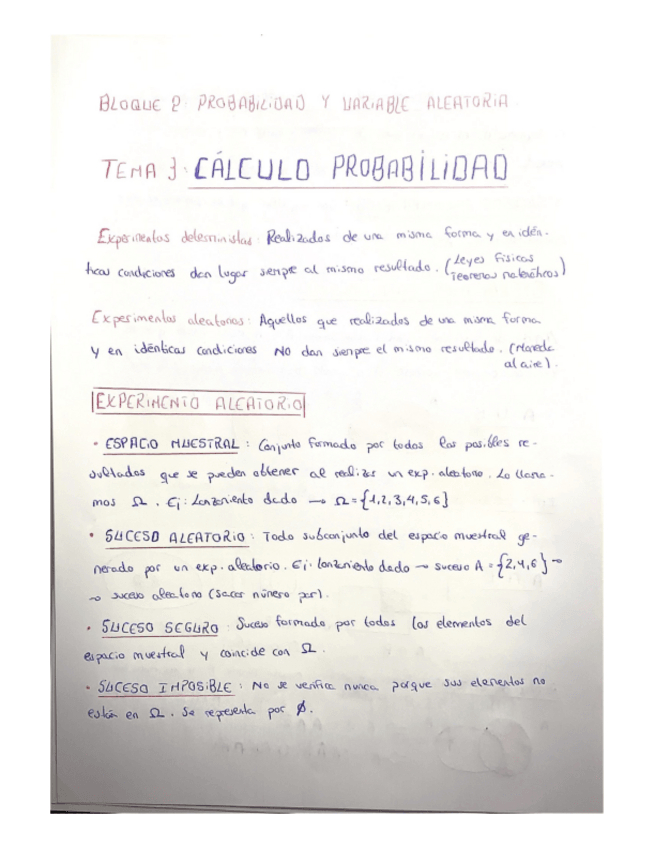 BLOQUE 2: PROBABILIDAD Y VARIABLE ALEATORIA
TEMA 3: CÁLCULO PROBABILIDAD
Experimentos deterministas: Realizados de una misma forma y en idén-
ticas condiciones dan lugar siempre al mismo resultado. (Leyes Físicas
Teoremas matemáticos)
Experimentos aleatorios: Aquellos que realizados de una misma forma
y en idénticas condiciones NO dan siempre el mismo resultado. (Moneda
al aire).
EXPERIMENTO ALEATORIO
• ESPACIO MUESTRAL: Conjunto formado por todos los posibles re-
sultados que se pueden obtener al realizar un exp. aleatorio. Lo llama-
mos Ω. Ej: Lanzamiento dado → Ω = {1,2,3,4,5,6}
• SUCESO ALEATORIO: Todo subconjunto del espacio muestral ge-
nerado por un exp. aleatorio. Ej: lanzamiento dado → suceso A = {2,4,6} →
→ suceso aleatorio (sacar número par).
• SUCESO SEGURO: Suceso formado por todos los elementos del
espacio muestral y coincide con Ω.
• SUCESO IMPOSIBLE: No se verifica nunca porque sus elementos no
están en Ω. Se representa por Ø.